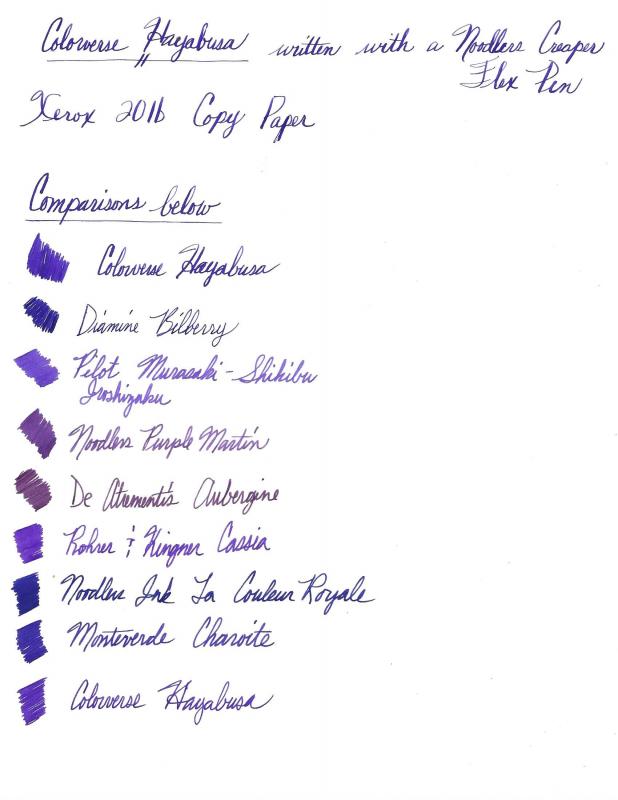 Colorverse Hayabusa written with a Noodlers Creaper
Flex Pen
Xerox 20lb Copy Paper
Comparisons below
Colorverse Hayabusa
Diamine Bilberry
Pilot Murasaki-Shikibu
Iroshizaku
Noodlers Purple Martin
De Atramentis Aubergine
Rohrer & Kingner Cassia
Noodlers Ink La Couleur Royale
Monteverde Charoite
Colorverse Hayabusa